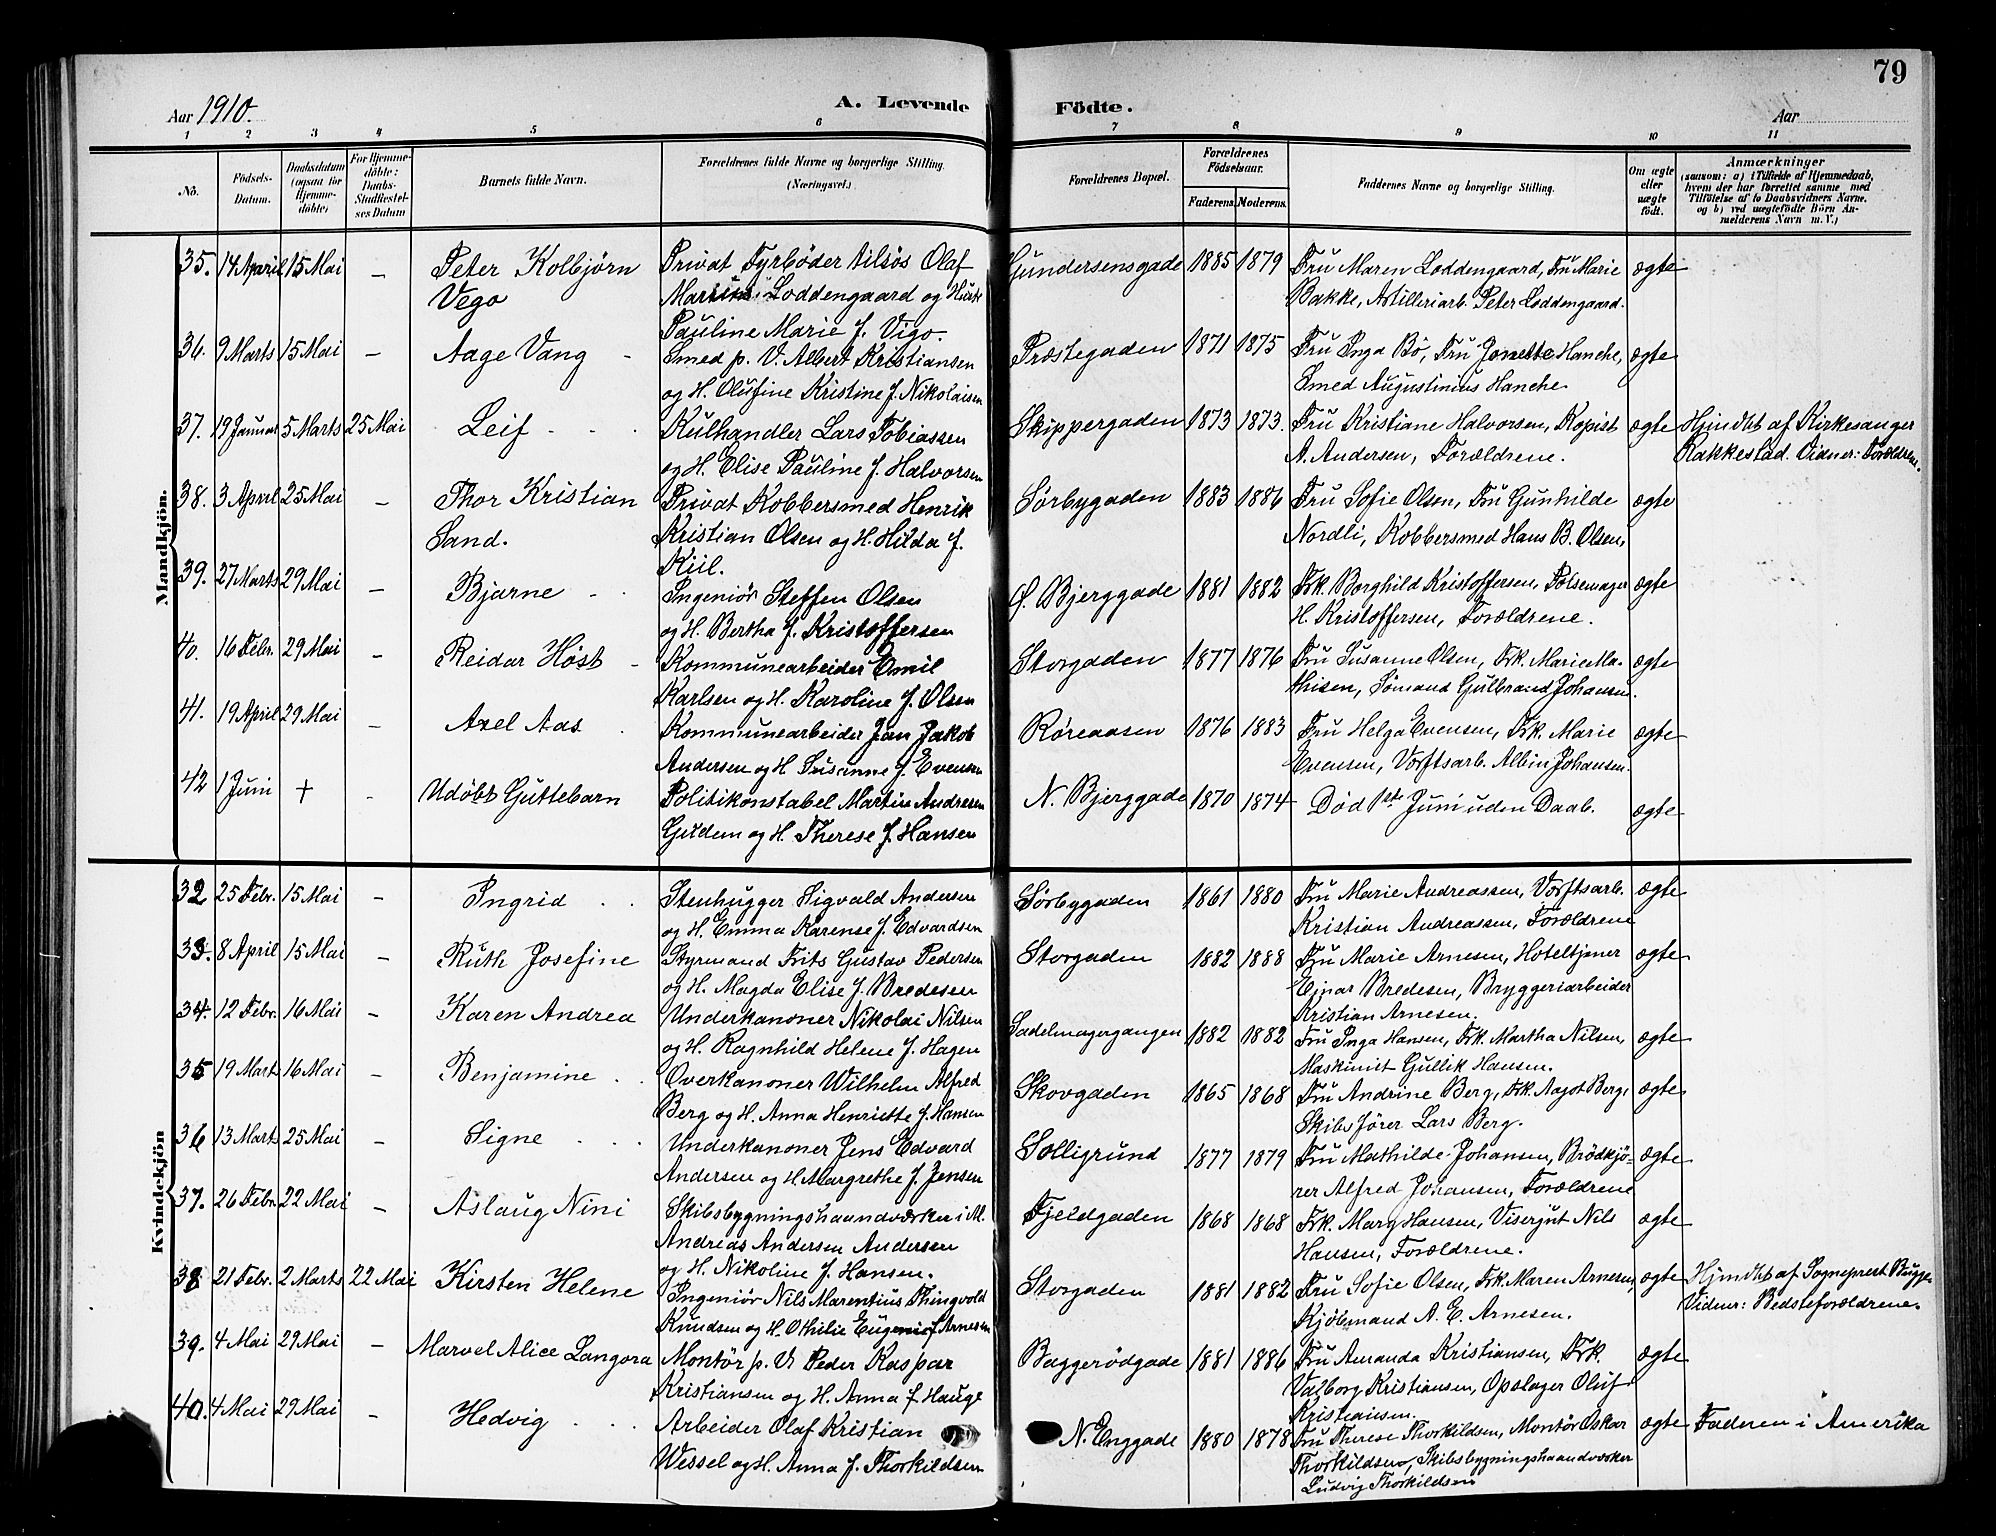 79
Aar 1910.
A. Levende Födte.
Aar
1 2 3 4 5 6 7 8 9 10 11
No.
Födsels-Datum.
Daabsdatum (ogsaa for Hjemme-döbte)
For Hjemme-döbte: Daabs-Stadfæstel-ses Datum
Barnets fulde Navn.
Forældrenes fulde Navne og borgerlige Stilling. (Næringsvei.)
Forældrenes Bopæl.
Forældrenes Födselsaar.
Faderens. Moderens.
Faddernes Navne og borgerlige Stilling.
Om ægte eller uægte födt.
Anmærkninger
(saasom: a) i Tilfælde af Hjemmedaab,
hvem der har forrettet samme, med
Tilföielse af to Daabsvidners Navne.
og b) ved uægtefödte Börn An-
melderens Navn m. V.)
Mandkjön.
35. 14 April 15 Mai - Peter Kolbjørn Privat Fyrbøder tilsøs Olaf Gundersensgade 1885 1879 Fru Maren Loddengaard, Fru Marie ægte
Vego Loddengaard og Hust Bakke, Artilleriarb. Peter Loddengaard.
Pauline Marie f. Vigo.
36. 9 Marts 15 Mai - Aage Vang - Smed p. V. Albert Kristiansen Præstegaden 1871 1875 Fru Inga Bö, Fru Jonette Hanche, ægte
og H. Olufine Kristine f. Nikolaisen Smed Augustinius Hanche
37. 19 Januar 5 Marts 25 Mai Leif - - Kulhandler Lars Tobiassen Skippergaden 1873 1873. Fru Kristiane Halvorsen, Kopist ægte Hjmdbt af Kirkesanger
og H. Elise Pauline f. Halvorsen A. Andersen, Forældrene. Rakkestad. Vidner: Forældrene.
38. 3 April 25 Mai - Thor Kristian Privat Kobbersmed Henrik Sørbygaden 1883 1886 Fru Sofie Olsen, Fru Gunhilde ægte
Sand. Kristian Olsen og H. Hilda f. Nordli, Kobbersmed Hans B. Olsen,
Kiil.
39. 27 Marts 29 Mai - Bjarne - Ingeniör Steffen Olsen Ø. Bjerggade 1881 1882 Frk. Borghild Kristoffersen, Pølsemager ægte
og H. Bertha f. Kristoffersen H. Kristoffersen, Forældrene.
40. 16 Febr. 29 Mai - Reidar Høst - Kommunearbeider Emil Storgaden 1877 1876 Fru Susanne Olsen, Frk. Marie Ma- ægte
Karlsen og H. Karoline f. Olsen thisen, Sømand Gulbrand Johansen.
41. 19 April 29 Mai - Axel Aas Kommunearbeider Jan Jakob Røreaasen 1876 1883 Fru Helga Evensen, Frk. Marie ægte
Andersen og H. Susanne f. Evensen Evensen, Værftsarb. Albin Johansen.
42 1 Juni + - Udøbt Guttebarn Politikonstabel Martin Andresen N. Bjerggade 1870 1874 Død 1ste Juni uden Daab. ægte
og H. Therese f. Hansen
Kvindekjön
32 25 Febr. 15 Mai - Ingrid - - Stenhugger Sigvald Andersen Sørbygaden 1861 1880 Fru Marie Andreassen, Værftsarb. ægte
og H. Emma Karense f. Edvardsen Kristian Andreassen, Forældrene
33. 8 April 15 Mai - Ruth Josefine Styrmand Frits Gustav Pedersen Storgaden 1882 1888 Fru Marie Arnesen, Hoteltjener ægte
og H. Magda Elise f. Bredesen Ejnar Bredesen, Bryggeriarbeider
Kristian Arnesen.
34. 12 Febr. 16 Mai - Karen Andrea Underkanoner Nikolai Nilsen Sadelmagergangen 1882 1882 Fru Inga Hansen, Frk. Martha Nilsen, ægte
og H. Ragnhild Helene f. Hagen Maskinist Gullik Hansen.
35 19 Marts 16 Mai - Benjamine - - Overkanoner Wilhelm Alfred Skovgaden 1865 1868 Fru Andrine Berg, Frk. Aagot Berg, ægte
Berg og H. Anna Henriette f. Hansen Skibsfører Lars Berg.
36 13 Marts 25 Mai - Signe - - - Underkanoner Jens Edvard Solligrund 1877 1879 Fru Mathilde Johansen, Brødkjö- ægte
Andersen og H. Margrethe f. Jensen rer Alfred Johansen, Forældrene
37. 26 Febr. 22 Mai - Aslaug Nini Skibsbygningshaandværker i M. Fjeldgaden 1868 1868 Frk. Mary Hansen, Visergut Nils ægte
Andreas Andersen Andersen Hansen, Forældrene.
og H. Nikoline f. Hansen.
38 21 Febr. 2 Marts 22 Mai Kirsten Helene Ingeniör Nils Marentius Thingvold Storgaden 1881 1882 Fru Sofie Olsen, Frk. Maren Arnesen, ægte Hjmdbt af Sogneprest Bugge
Knudsen og H. Othilie Eugenie f. Arnesen Kjöbmand A. E. Arnesen. Vidner: Bedsteforældrene.
39. 4 Mai 29 Mai - Marvel Alice Langora Montör p. V. Peder Kaspar Baggerødgade 1881 1886 Fru Amanda Kristiansen, Frk. ægte
Kristiansen og H. Anna f. Hauge Valborg Kristiansen, Opslager Oluf
Kristiansen.
40. 4 Mai 29 Mai - Hedvig - - Arbeider Olaf Kristian N. Enggade 1880 1878 Fru Therese Thorkildsen, Montör Oskar ægte Faderen i Amerika
Wessel og H. Anna f. Thorkildsen Thorkildsen, Skibsbygningshaandværker
Ludvig Thorkildsen